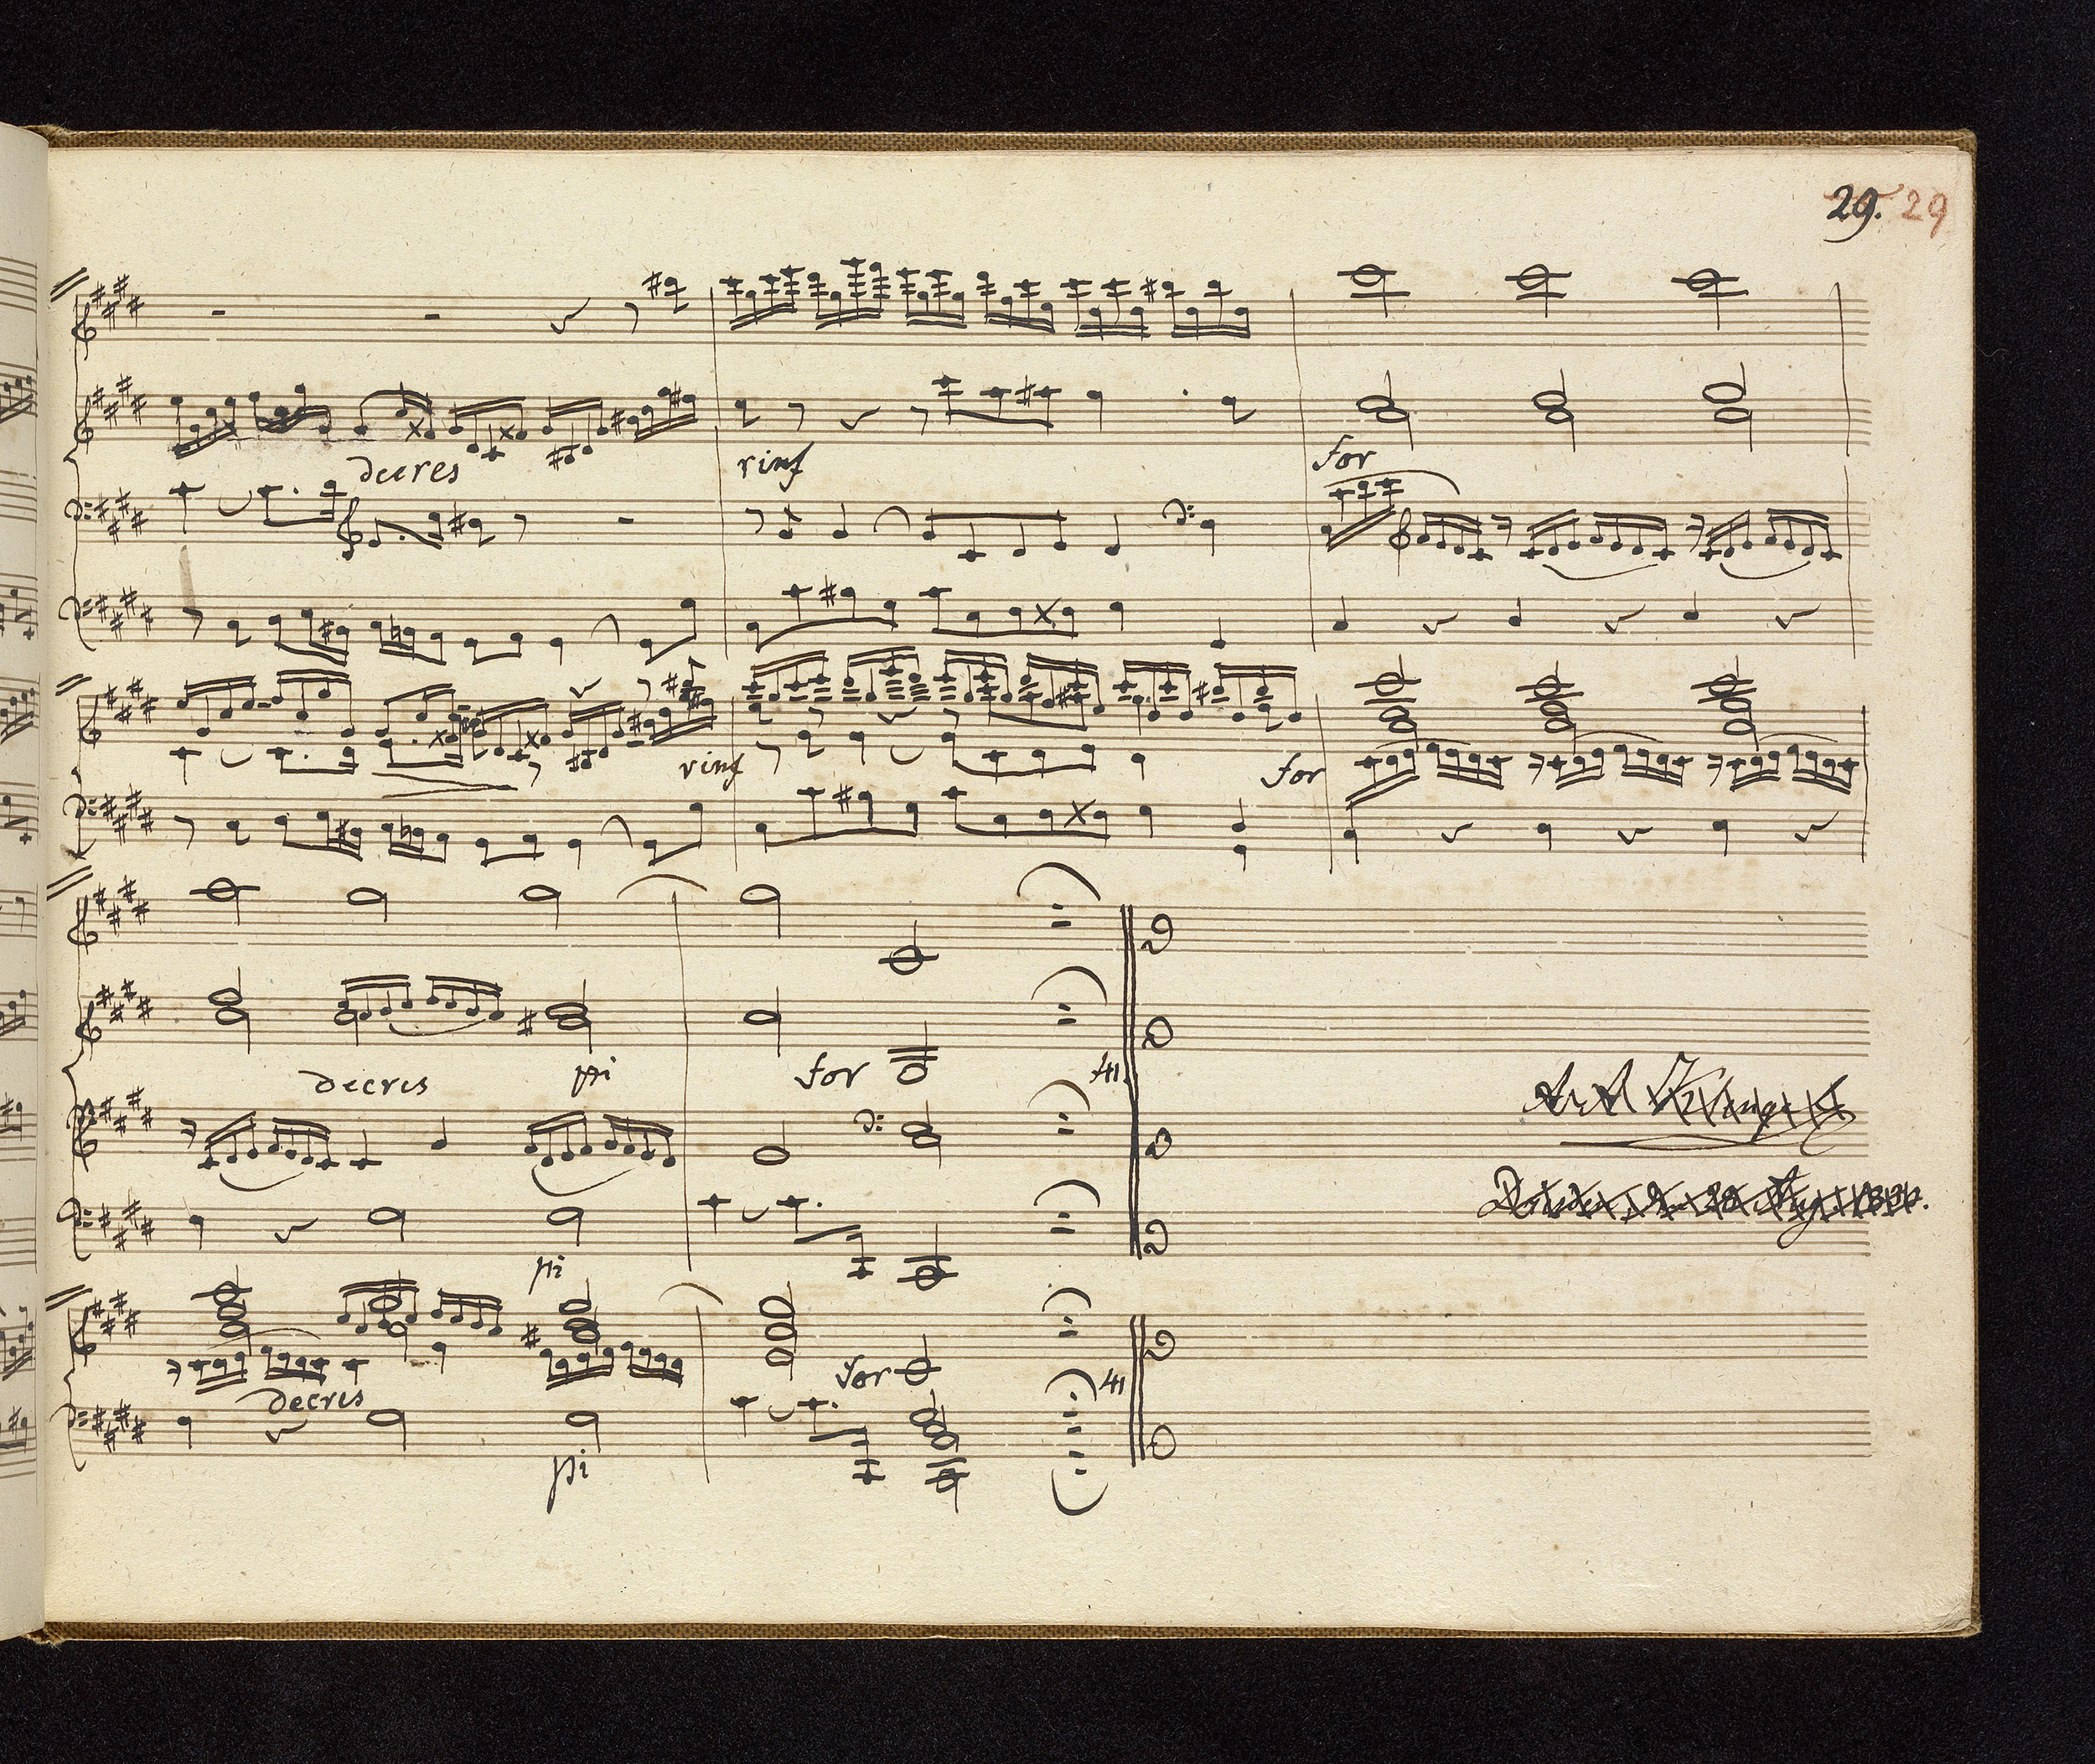 29. 29
decres rinf for
rinf for
decres pi for 41.
pi
for 41
decres
pi